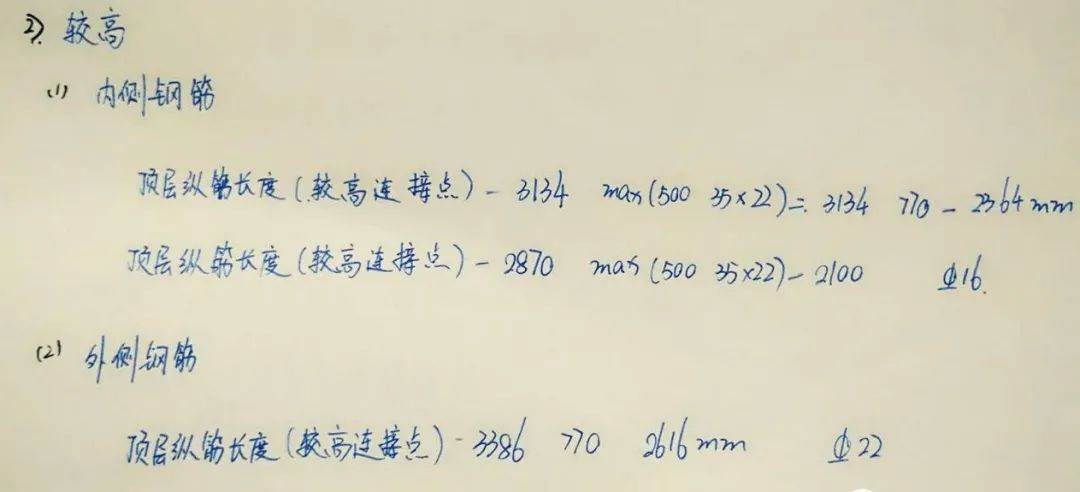 2). 较高
(1) 内侧钢筋
顶层纵筋长度(较高连接点) - 3134 max(500 35×22)= 3134 770 - 2364mm
顶层纵筋长度(较高连接点) - 2870 max(500 35×22) - 2100 Φ16.
(2) 外侧钢筋
顶层纵筋长度(较高连接点) - 3386 770 2616mm Φ22